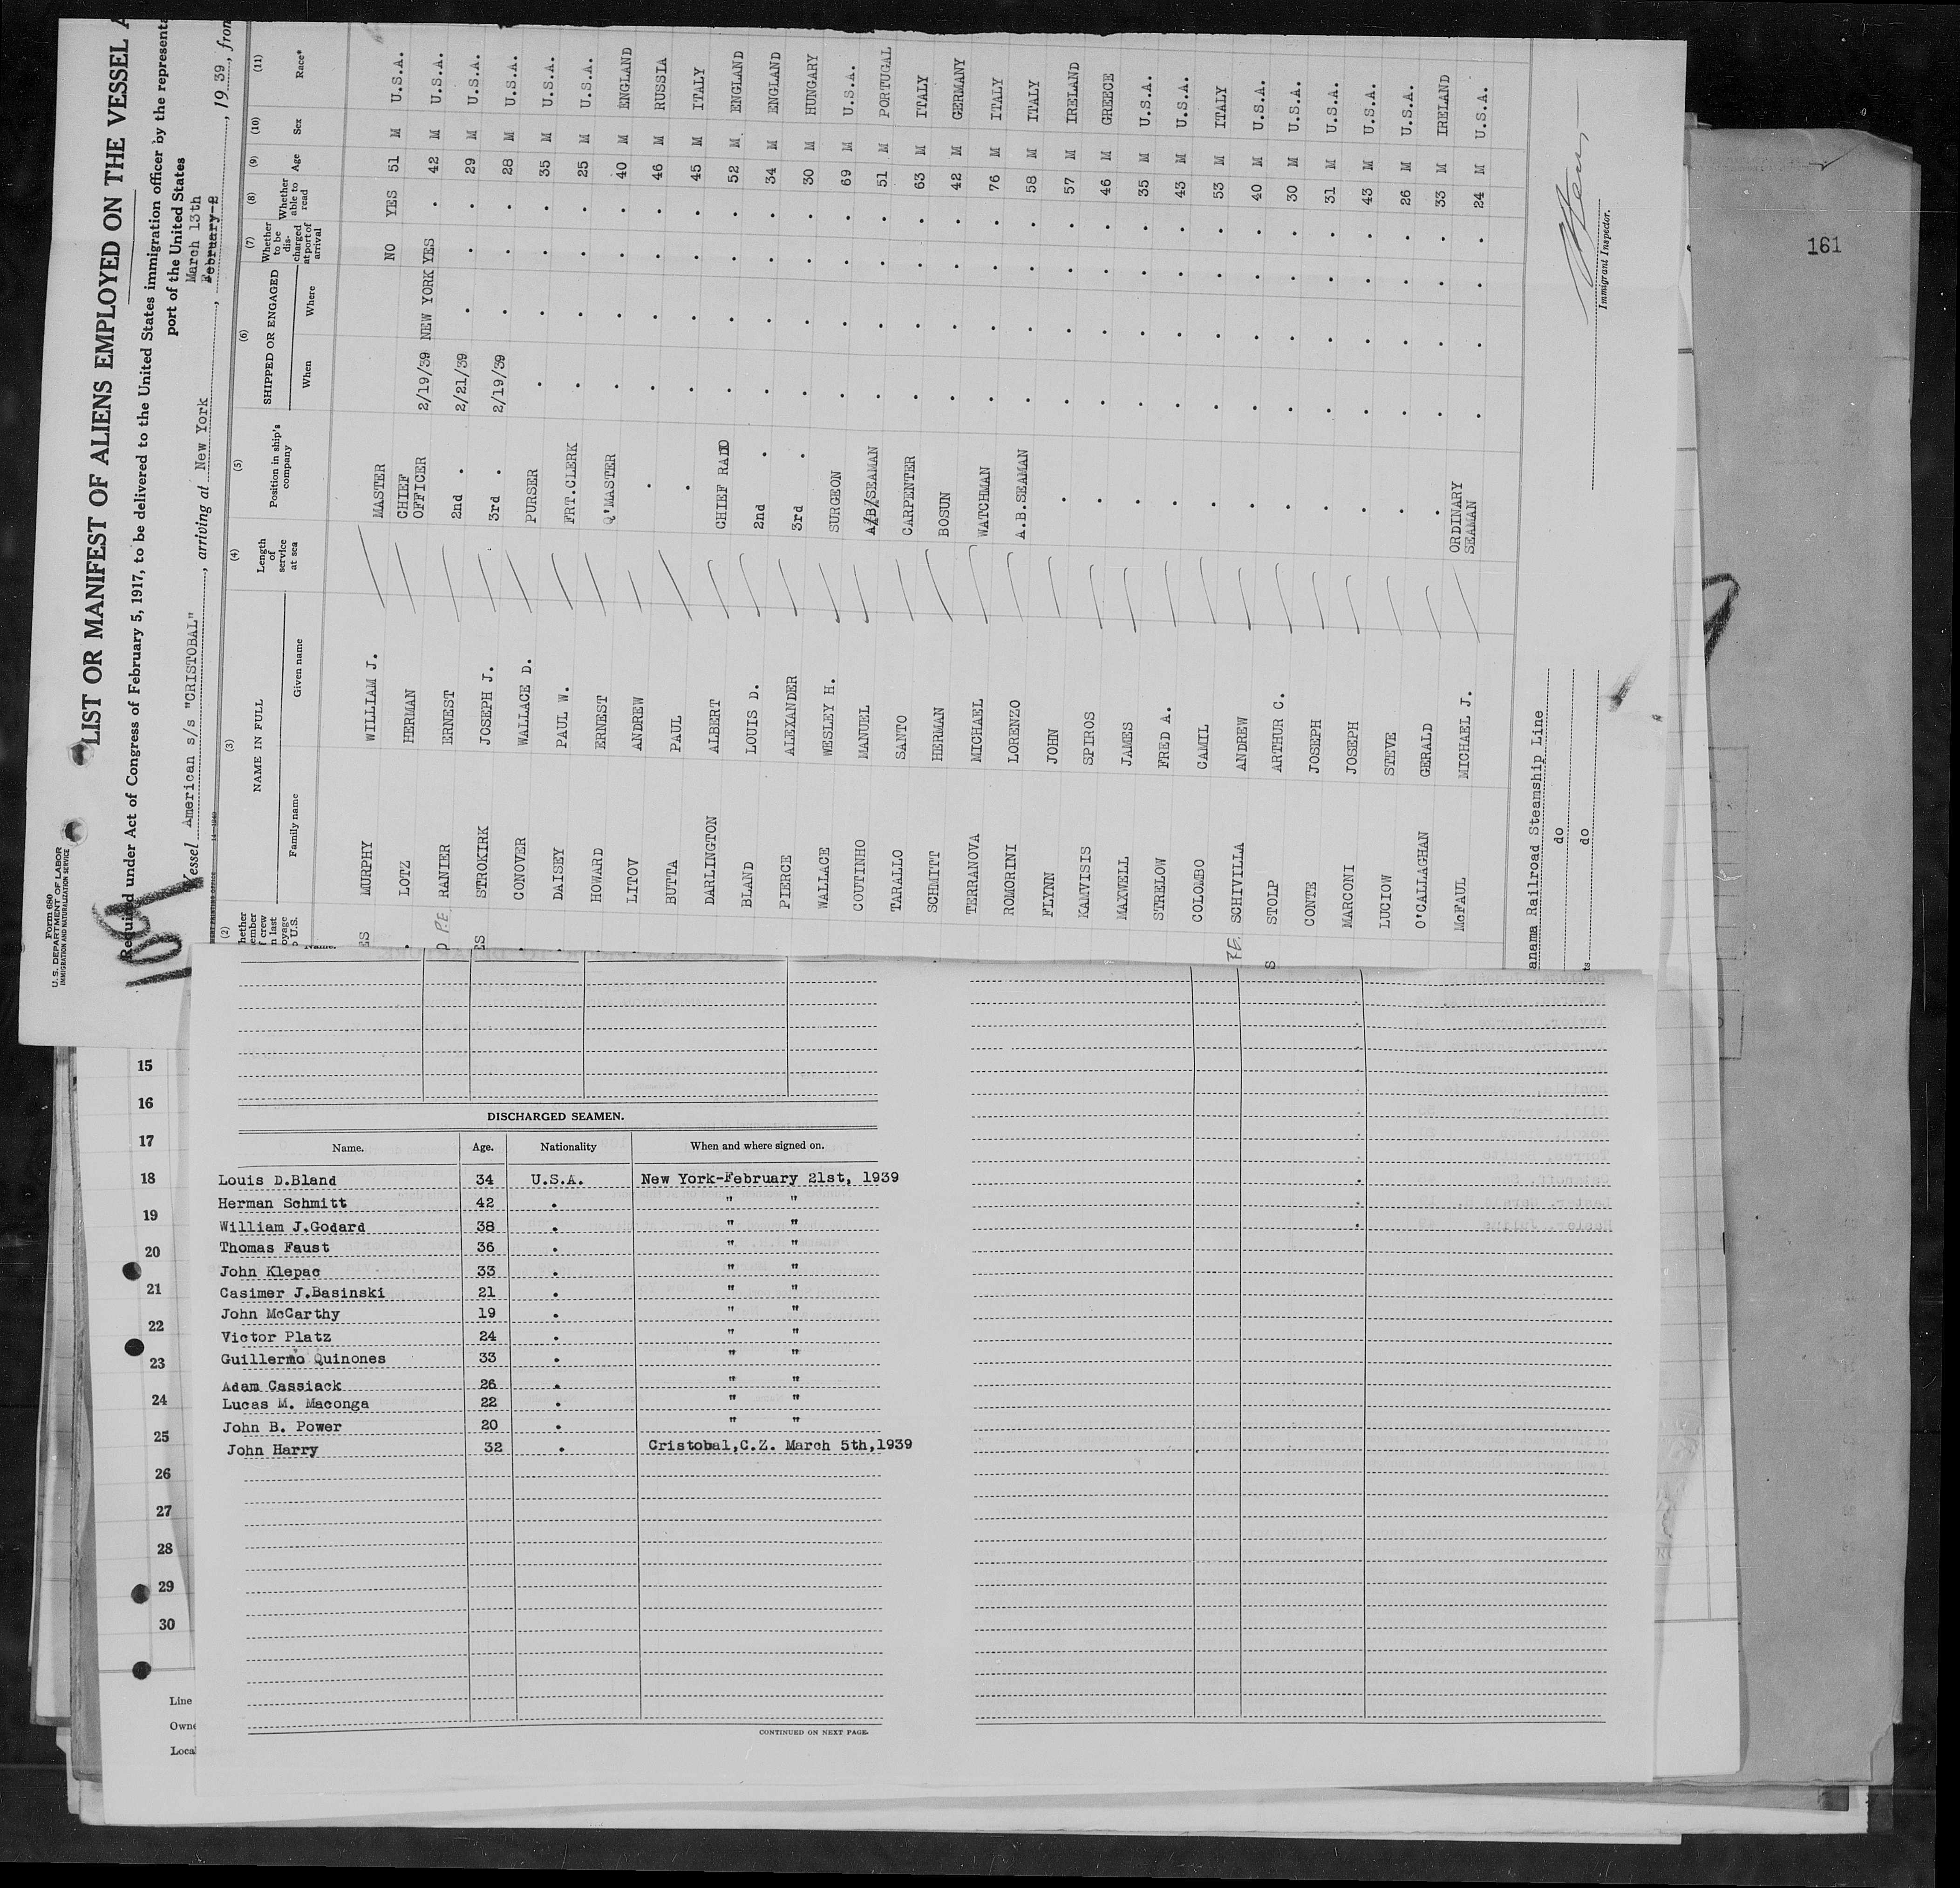 Form 680
U.S. DEPARTMENT OF LABOR
IMMIGRATION AND NATURALIZATION SERVICE
LIST OR MANIFEST OF ALIENS EMPLOYED ON THE VESSEL A
Required under Act of Congress of February 5, 1917, to be delivered to the United States immigration officer by the representa
port of the United States
March 13th
Vessel American s/s "CRISTOBAL", arriving at New York, February 2, 1939, from
(2) (3) (4) (5) (6) (7) (8) (9) (10) (11)
NAME IN FULL
Family name Given name
Length of service at sea
Position in ship's company
SHIPPED OR ENGAGED
When Where
Whether to be discharged at port of arrival
Whether able to read
Age Sex Race*
MURPHY WILLIAM J. MASTER NO YES 51 M U.S.A.
LOTZ HERMAN CHIEF OFFICER 2/19/39 NEW YORK YES . 42 M U.S.A.
P.E. RANIER ERNEST 2nd . 2/21/39 . . . 29 M U.S.A.
STROKIRK JOSEPH J. 3rd . 2/19/39 . . . 28 M U.S.A.
CONOVER WALLACE D. PURSER . . . . 35 M U.S.A.
DAISEY PAUL W. FRT.CLERK . . . . 25 M U.S.A.
HOWARD ERNEST Q'MASTER . . . . 40 M ENGLAND
LITOV ANDREW . . . . . 46 M RUSSIA
BUTTA PAUL . . . . . 45 M ITALY
DARLINGTON ALBERT CHIEF RADIO . . . . 52 M ENGLAND
BLAND LOUIS D. 2nd . . . . . 34 M ENGLAND
PIERCE ALEXANDER 3rd . . . . . 30 M HUNGARY
WALLACE WESLEY H. SURGEON . . . . 69 M U.S.A.
COUTINHO MANUEL A/B/SEAMAN . . . . 51 M PORTUGAL
TARALLO SANTO CARPENTER . . . . 63 M ITALY
SCHMITT HERMAN BOSUN . . . . 42 M GERMANY
TERRANOVA MICHAEL WATCHMAN . . . . 76 M ITALY
ROMORINI LORENZO A.B.SEAMAN . . . . 58 M ITALY
FLYNN JOHN . . . . . 57 M IRELAND
KAMVISIS SPIROS . . . . . 46 M GREECE
MAXWELL JAMES . . . . . 35 M U.S.A.
STRELOW FRED A. . . . . . 43 M U.S.A.
COLOMBO CAMIL . . . . . 53 M ITALY
P.E. SCHIVILLA ANDREW . . . . . 40 M U.S.A.
STOLP ARTHUR C. . . . . . 30 M U.S.A.
CONTE JOSEPH . . . . . 31 M U.S.A.
MARCONI JOSEPH . . . . . 43 M U.S.A.
LUCIOW STEVE . . . . . 26 M U.S.A.
O'CALLAGHAN GERALD . . . . . 33 M IRELAND
McFAUL MICHAEL J. ORDINARY SEAMAN . . . . 24 M U.S.A.
anama Railroad Steamship Line
do
do
Immigrant Inspector.
161
15
16
17
18
19
20
21
22
23
24
25
26
27
28
29
30
Line
Owne
Local
DISCHARGED SEAMEN.
Name. Age. Nationality When and where signed on.
Louis D.Bland 34 U.S.A. New York-February 21st, 1939
Herman Schmitt 42 . " "
William J.Godard 38 . " "
Thomas Faust 36 . " "
John Klepac 33 . " "
Casimer J.Basinski 21 . " "
John McCarthy 19 . " "
Victor Platz 24 . " "
Guillermo Quinones 33 . " "
Adam Cassiack 26 . " "
Lucas M. Maconga 22 . " "
John B. Power 20 . " "
John Harry 32 . Cristobal,C.Z. March 5th,1939
CONTINUED ON NEXT PAGE.